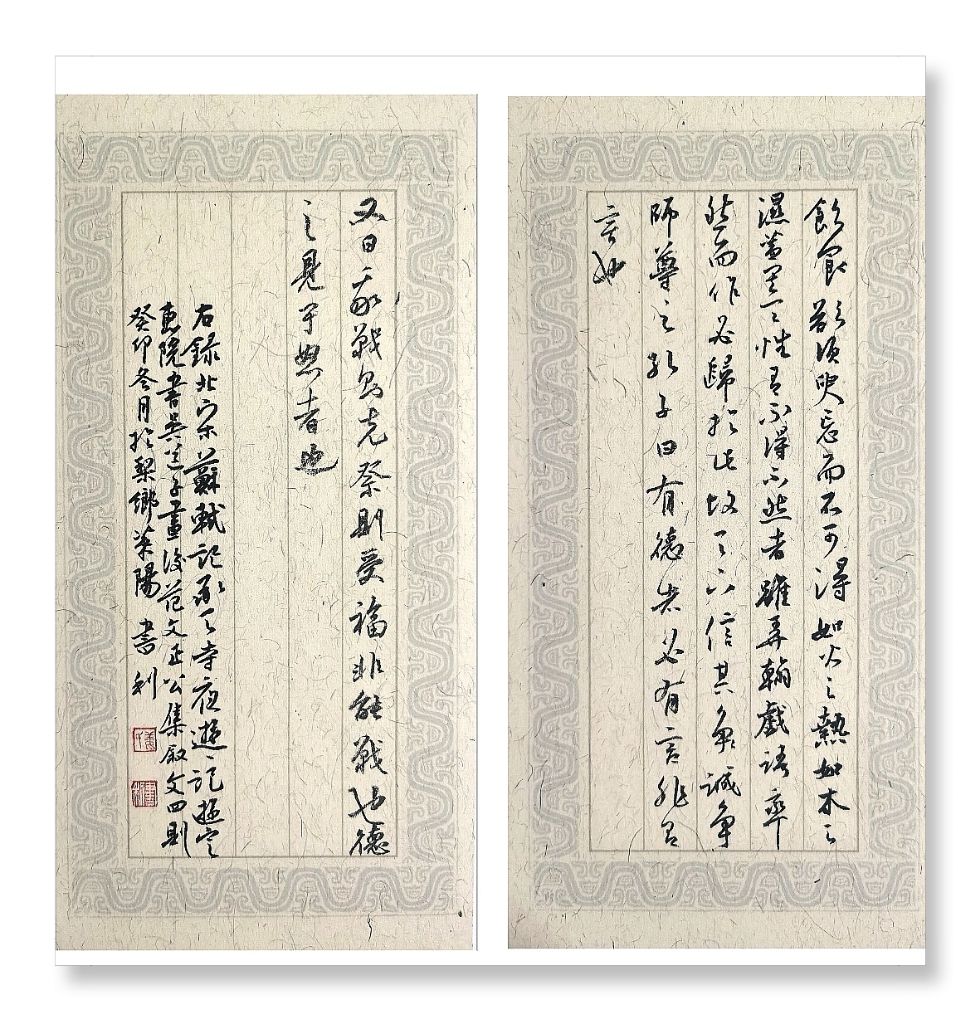 飲食欲須臾忘而不可得如火之熱如水之
濕蓋其天性有不得不然者雖弄翰戲語率
然而作必歸於此故天下信其爭誠爭
師尊之孔子曰有德者必有言非有
言也
又曰我戰則克祭則受福非能戰也德
之見于怒者也
右錄北宋蘇軾記承天寺夜遊記遊定
惠院書吳道子畫後范文正公集叙文四則
癸卯冬月於梨鄉萊陽 書利